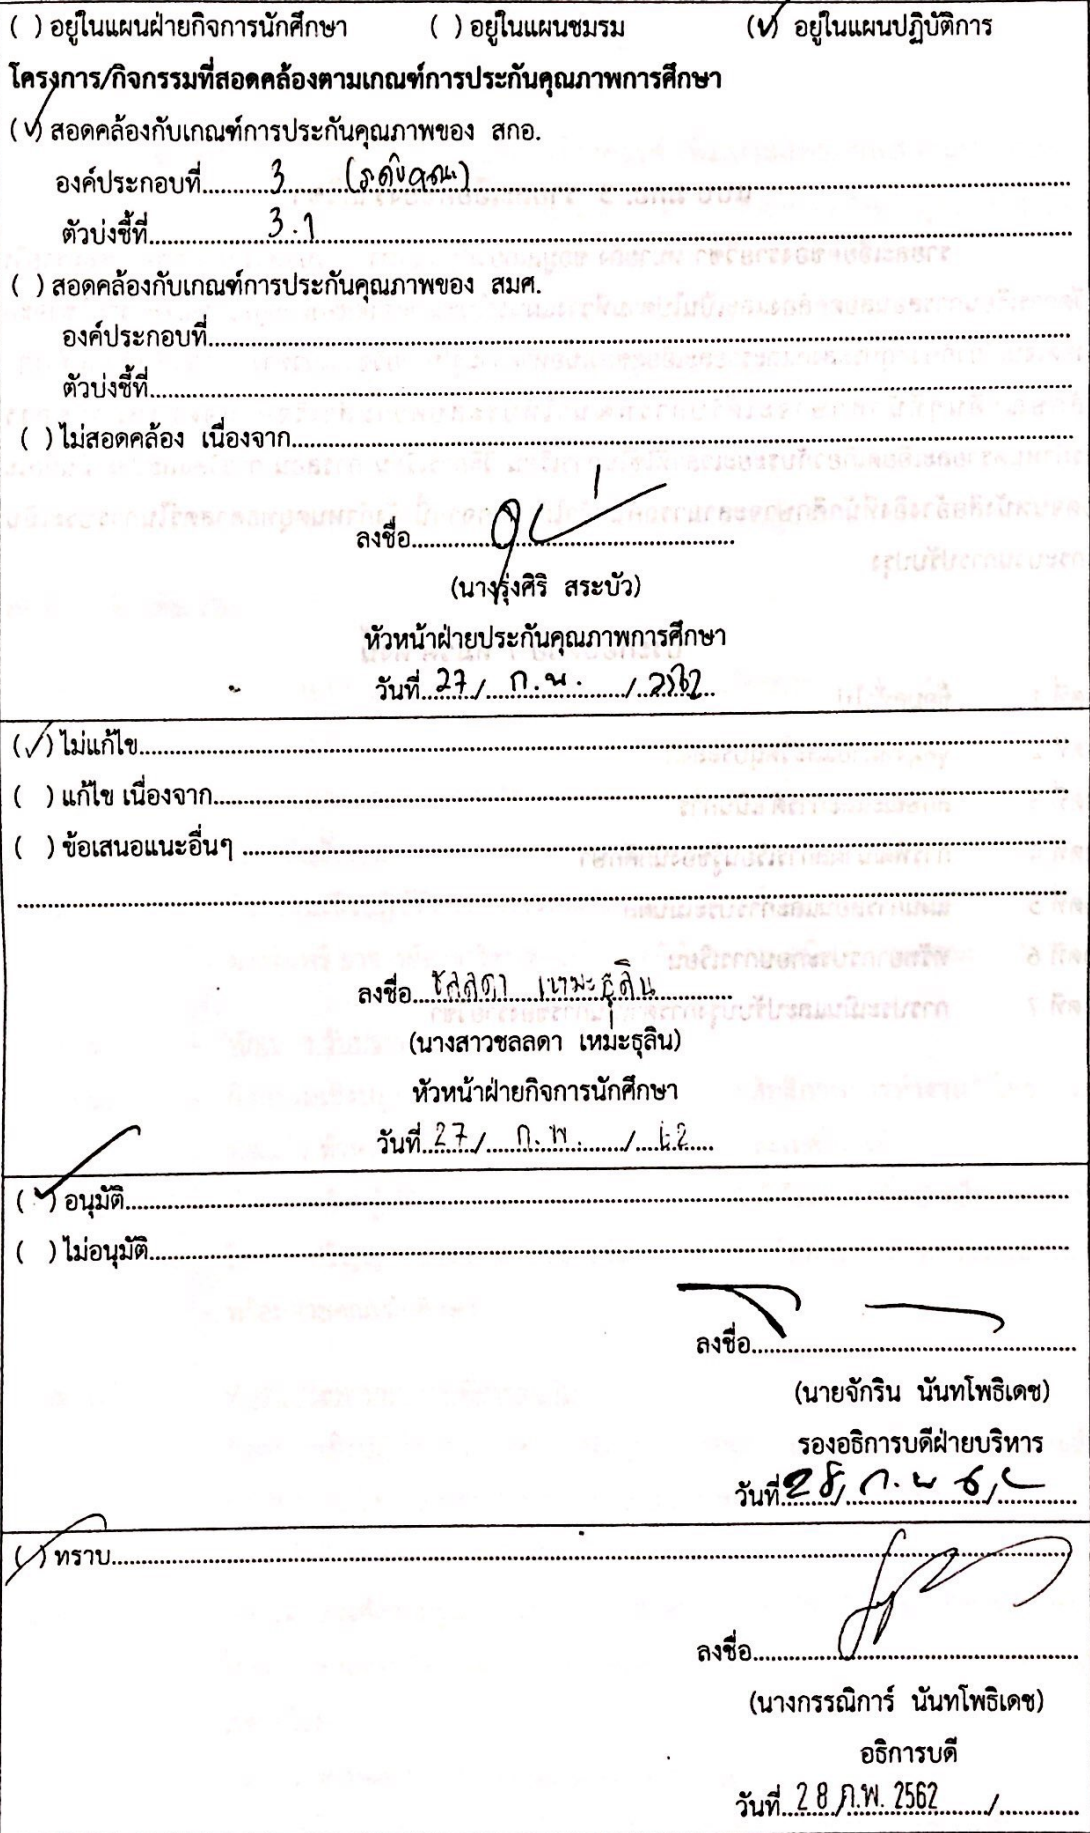 ( ) อยู่ในแผนฝ่ายกิจการนักศึกษา ( ) อยู่ในแผนชมรม (✓) อยู่ในแผนปฏิบัติการ
โครงการ/กิจกรรมที่สอดคล้องตามเกณฑ์การประกันคุณภาพการศึกษา
(✓) สอดคล้องกับเกณฑ์การประกันคุณภาพของ สกอ.
องค์ประกอบที่ 3 (ระดับคณะ)
ตัวบ่งชี้ที่ 3.1
( ) สอดคล้องกับเกณฑ์การประกันคุณภาพของ สมศ.
องค์ประกอบที่
ตัวบ่งชี้ที่
( ) ไม่สอดคล้อง เนื่องจาก
ลงชื่อ
(นางรุ่งศิริ สระบัว)
หัวหน้าฝ่ายประกันคุณภาพการศึกษา
วันที่ 27 / ก.พ. / 2562
(✓) ไม่แก้ไข
( ) แก้ไข เนื่องจาก
( ) ข้อเสนอแนะอื่นๆ
ลงชื่อ ชลลดา เหมะธุลิน
(นางสาวชลลดา เหม่ะธุลิน)
หัวหน้าฝ่ายกิจการนักศึกษา
วันที่ 27 / ก.พ. / 62
(✓) อนุมัติ
( ) ไม่อนุมัติ
ลงชื่อ
(นายจักริน นันทโพธิเดช)
รองอธิการบดีฝ่ายบริหาร
วันที่ 28 / ก.พ 62
(✓) ทราบ
ลงชื่อ
(นางกรรณิการ์ นันทโพธิเดช)
อธิการบดี
วันที่ 28 ก.พ. 2562